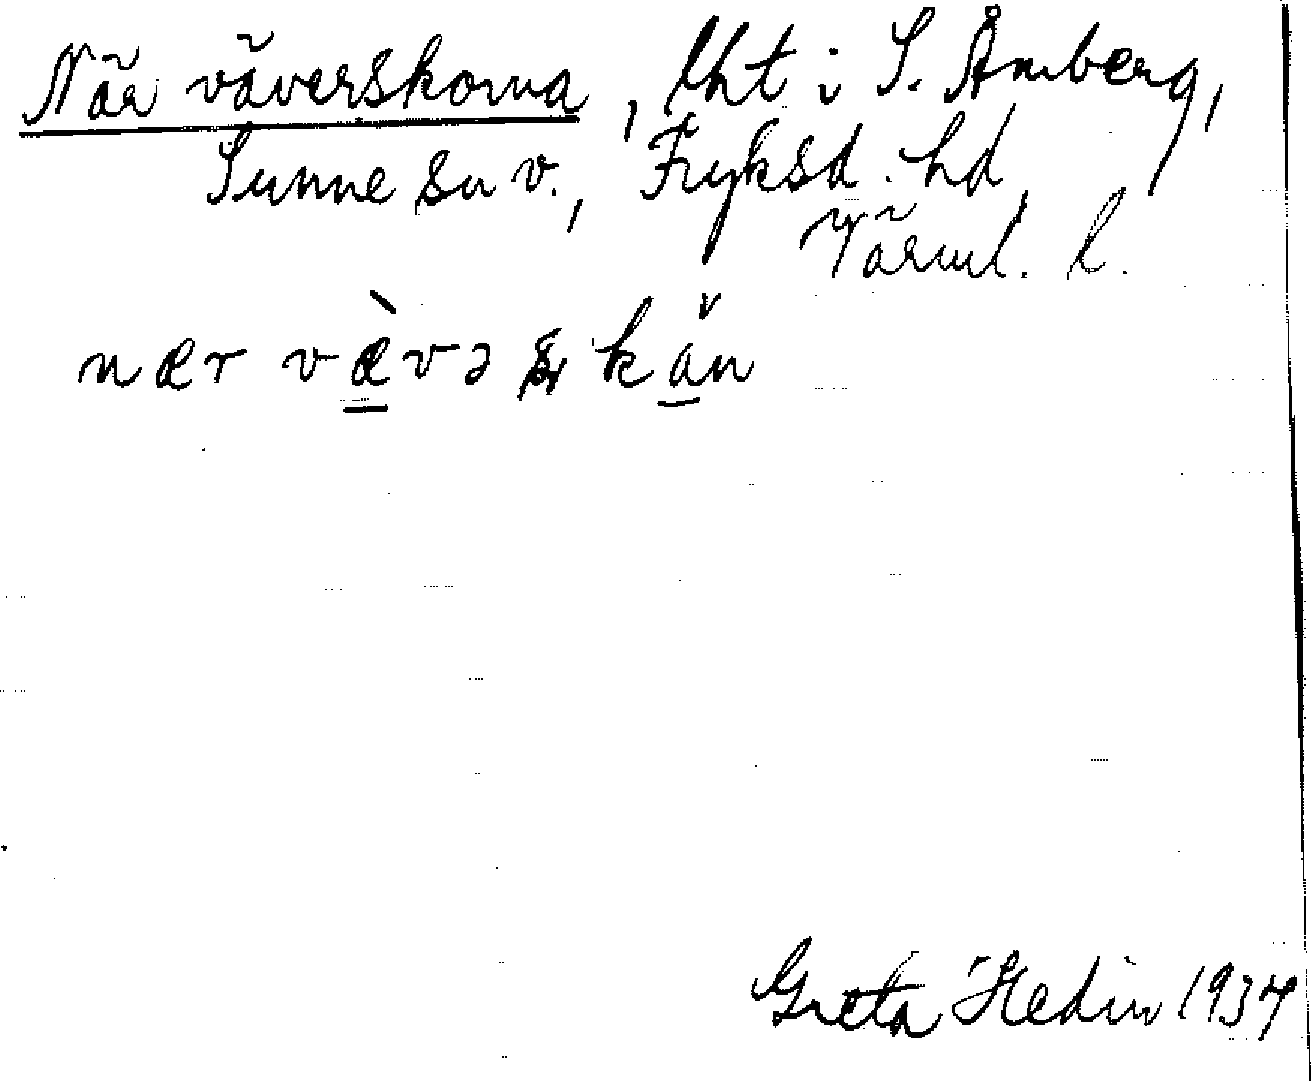 När väverskorna, lht i S. Åmberg,
Sunne sn v., Fryksd. hd,
Värml. l.
nær væ̀və kån
Greta Hedin 1934